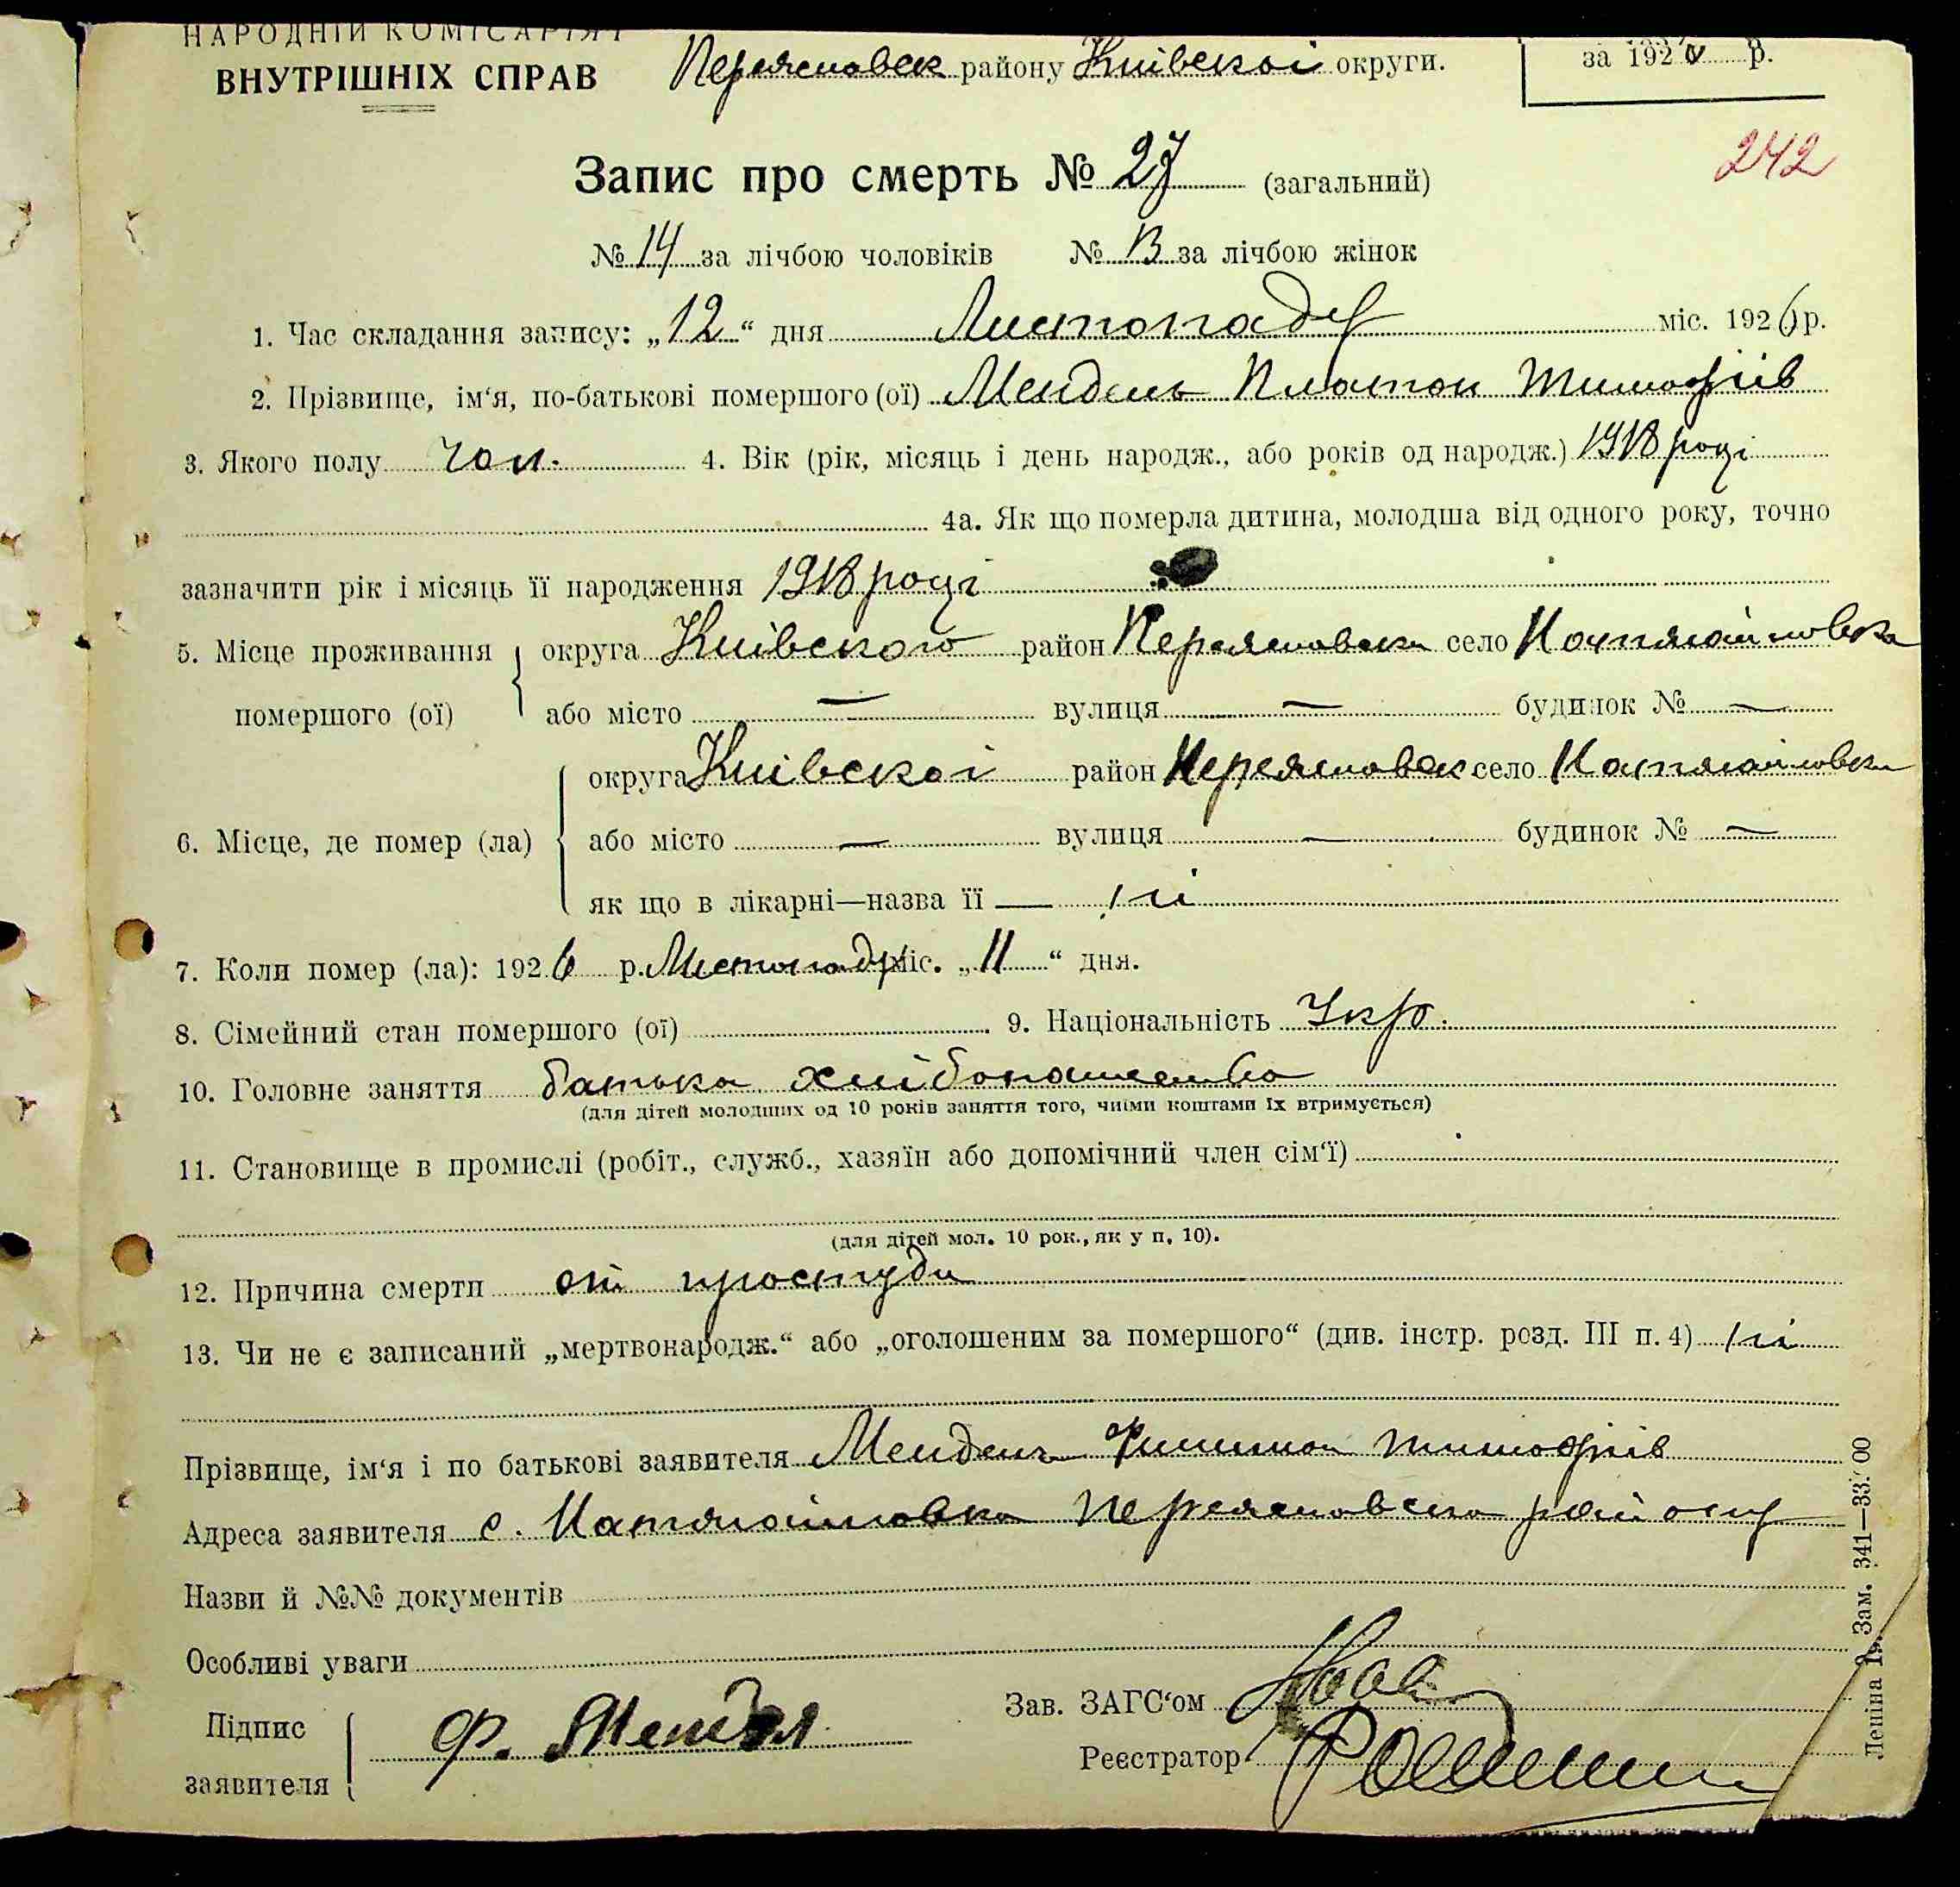 НАРОДНІЙ КОМІСАРІЯТ
ВНУТРІШНІХ СПРАВ
Переяславск району Київскоі округи.
за 1926 р.
242
Запис про смерть № 27 (загальний)
№ 14 за лічбою чоловіків № 13 за лічбою жінок
1. Час складання запису: „12“ дня Листопаду міс. 1926 р.
2. Прізвище, ім‘я, по-батькові помершого (ої) Мендель Платон Тимофіїв
3. Якого полу чол. 4. Вік (рік, місяць і день народж., або років од народж.) 1918 році
4а. Як що померла дитина, молодша від одного року, точно
зазначити рік і місяць її народження 1918 році
5. Місце проживання округа Київского район Переяславськ село
помершого (ої) або місто — вулиця — будинок № —
округа Київскоі район Переяславск село
6. Місце, де помер (ла) або місто — вулиця — будинок № —
як що в лікарні—назва її — ні
7. Коли помер (ла): 1926 р. Листопаду міс. „11“ дня.
8. Сімейний стан помершого (ої) 9. Національність Укр.
10. Головне заняття батька хлібопашество
(для дітей молодших од 10 років заняття того, чиїми коштами їх втримується)
11. Становище в промислі (робіт., служб., хазяїн або допомічний член сім‘ї)
(для дітей мол. 10 рок., як у п. 10).
12. Причина смерти от простуди
13. Чи не є записаний „мертвонародж.“ або „оголошеним за помершого“ (див. інстр. розд. III п. 4) ні
Прізвище, ім‘я і по батькові заявителя Мендель Филимон Тимофіів
Адреса заявителя с. Переяславско району
Назви й №№ документів
Особливі уваги
Підпис
заявителя Ф. Мендел
Зав. ЗАГС‘ом
Реєстратор
Леніна 19. Зам. 341—33